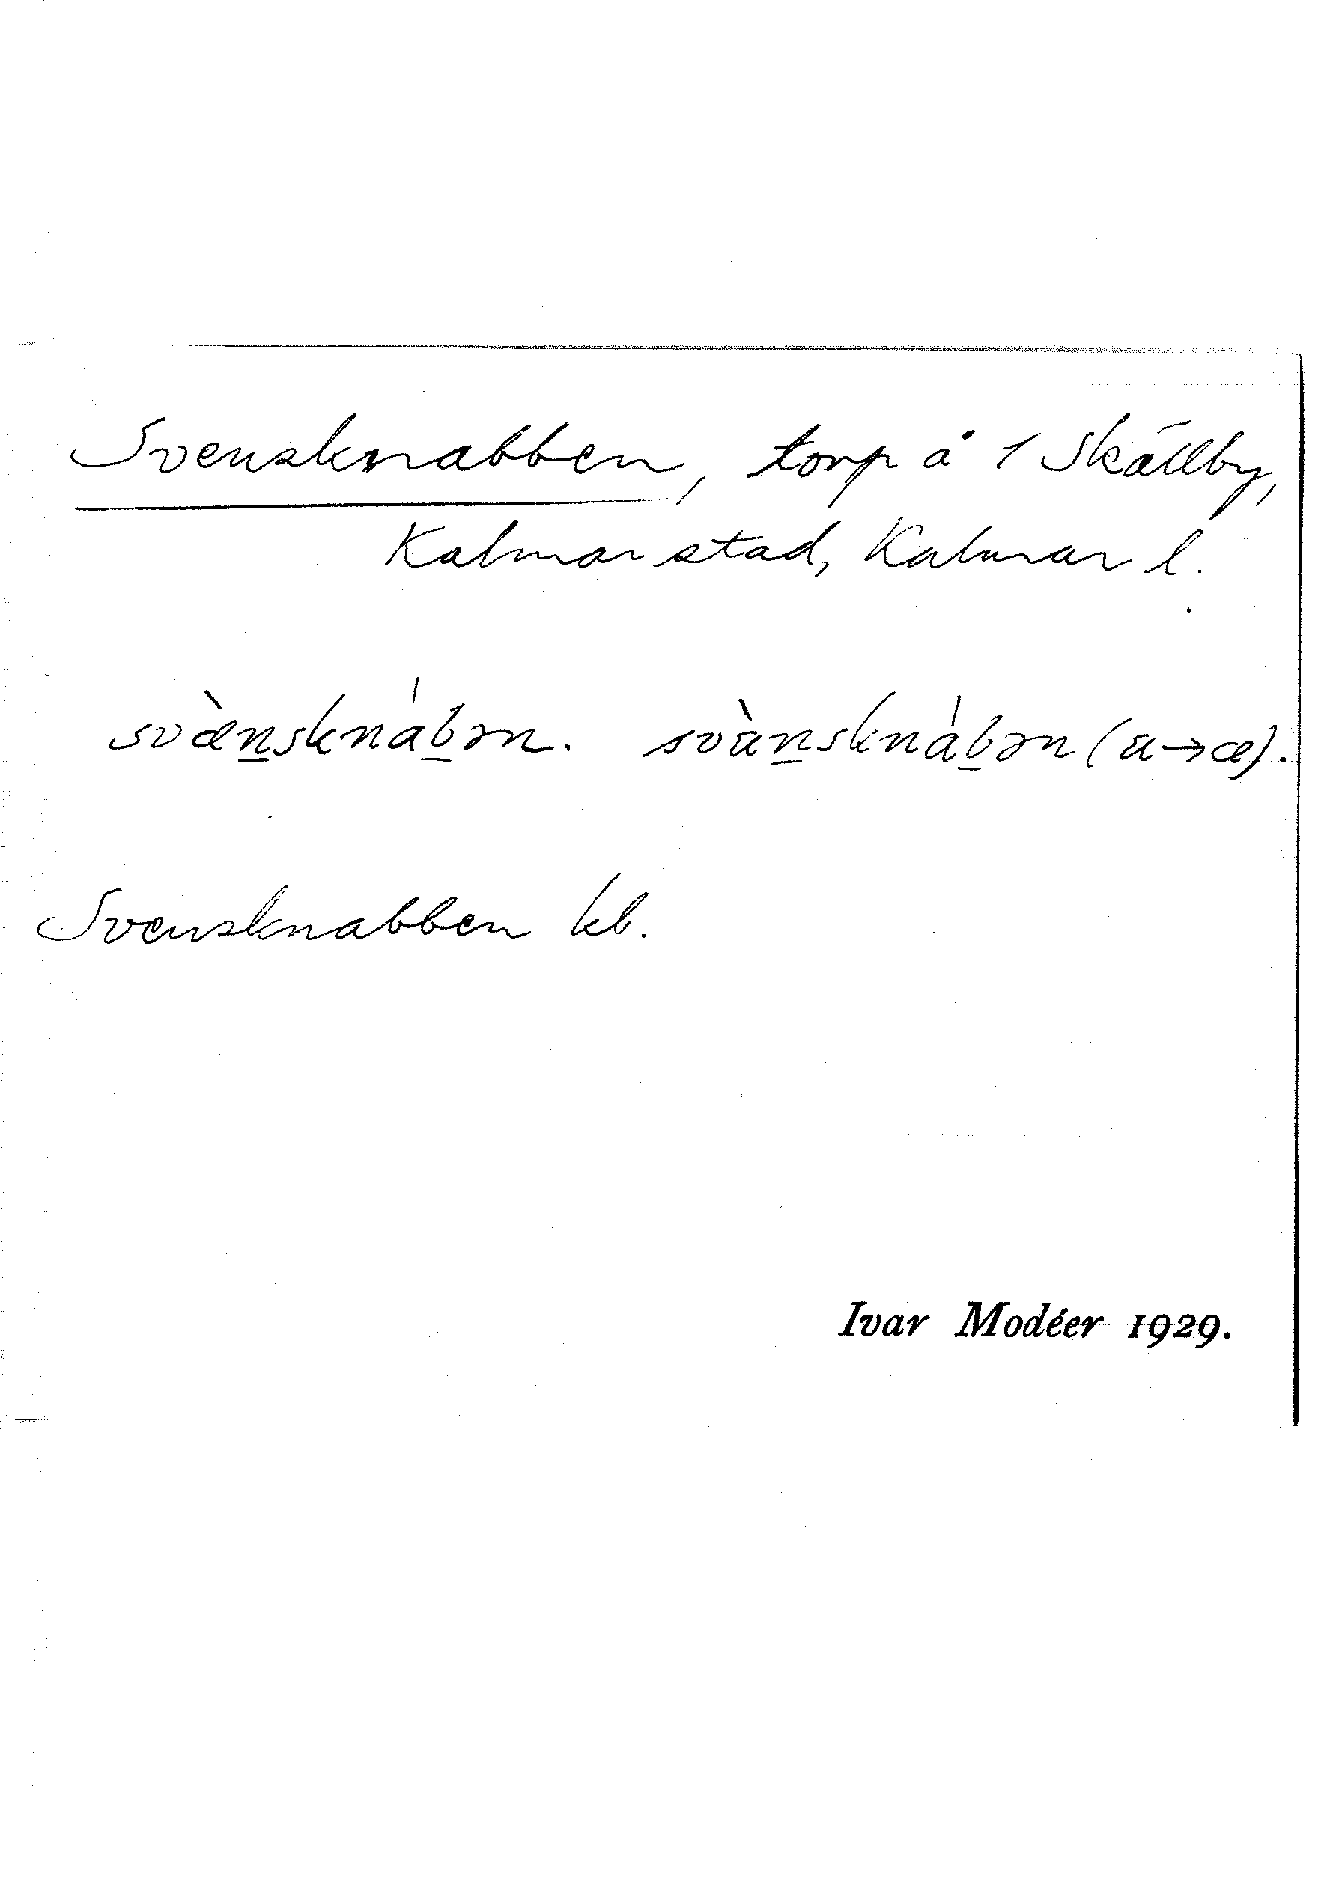 Svensknabben, torp å 1 Skällby,
Kalmar stad, Kalmar l.
svæ̀n̲sknáb̲ən. svàn̲sknáb̲ən (a→æ).
Svensknabben kb.
Ivar Modéer 1929.